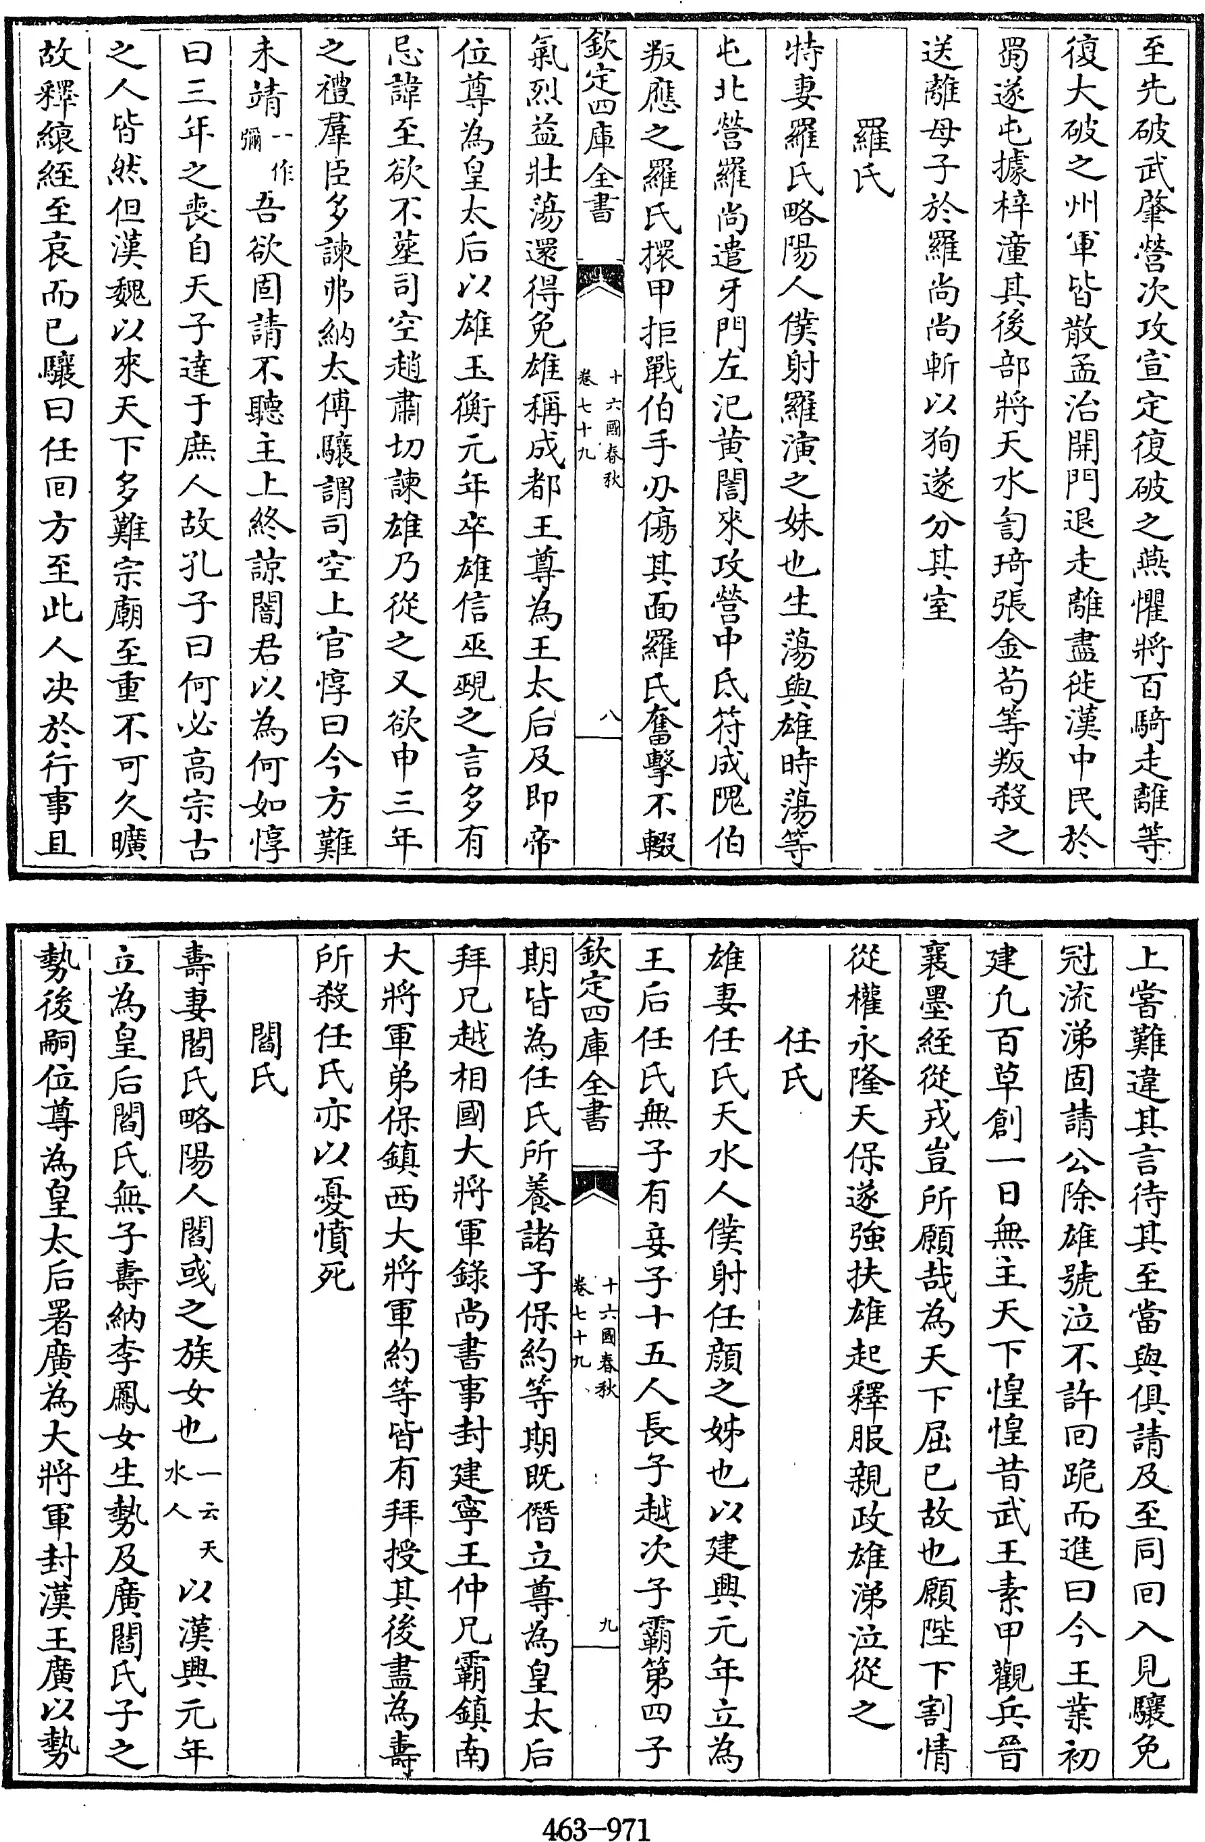 至先破武肇營次攻宣定復破之燕懼將百騎走離等
復大破之州軍皆散孟治開門退走離盡徙漢中民於
蜀遂屯據梓潼其後部將天水訇琦張金苟等叛殺之
送離母子於羅尚尚斬以狥遂分其室
羅氏
特妻羅氏略陽人僕射羅演之妹也生蕩與雄時蕩等
屯北營羅尚遣牙門左汜黄訚來攻營中氐符成隗伯
叛應之羅氏擐甲拒戰伯手刃傷其面羅氏奮擊不輟
欽定四庫全書
十六國春秋
卷七十九
八
氣烈益壯蕩還得免雄稱成都王尊為王太后及即帝
位尊為皇太后以雄玉衡元年卒雄信巫覡之言多有
忌諱至欲不塟司空趙肅切諫雄乃從之又欲申三年
之禮羣臣多諫弗納太傅驤謂司空上官惇曰今方難
未靖一作彌吾欲固請不聽主上終諒闇君以為何如惇
曰三年之喪自天子達于庶人故孔子曰何必高宗古
之人皆然但漢魏以來天下多難宗廟至重不可久曠
故釋縗絰至哀而已驤曰任回方至此人决於行事且
上當難違其言待其至當與俱請及至同回入見驤免
冠流涕固請公除雄號泣不許回跪而進曰今王業初
建凡百草創一日無主天下惶惶昔武王素甲觀兵晉
襄墨絰從戎豈所願哉為天下屈已故也願陛下割情
從權永隆天保遂強扶雄起釋服親政雄涕泣從之
任氏
雄妻任氏天水人僕射任顔之姊也以建興元年立為
王后任氏無子有妾子十五人長子越次子霸第四子
欽定四庫全書
十六國春秋
卷七十九
九
期皆為任氏所養諸子保約等期既僭立尊為皇太后
拜兄越相國大將軍錄尚書事封建寧王仲兄霸鎮南
大將軍弟保鎮西大將軍約等皆有拜授其後盡為壽
所殺任氏亦以憂憤死
閻氏
壽妻閻氏略陽人閻或之族女也一云天水人以漢興元年
立為皇后閻氏無子壽納李鳳女生勢及廣閻氏子之
勢後嗣位尊為皇太后署廣為大將軍封漢王廣以勢
463-971